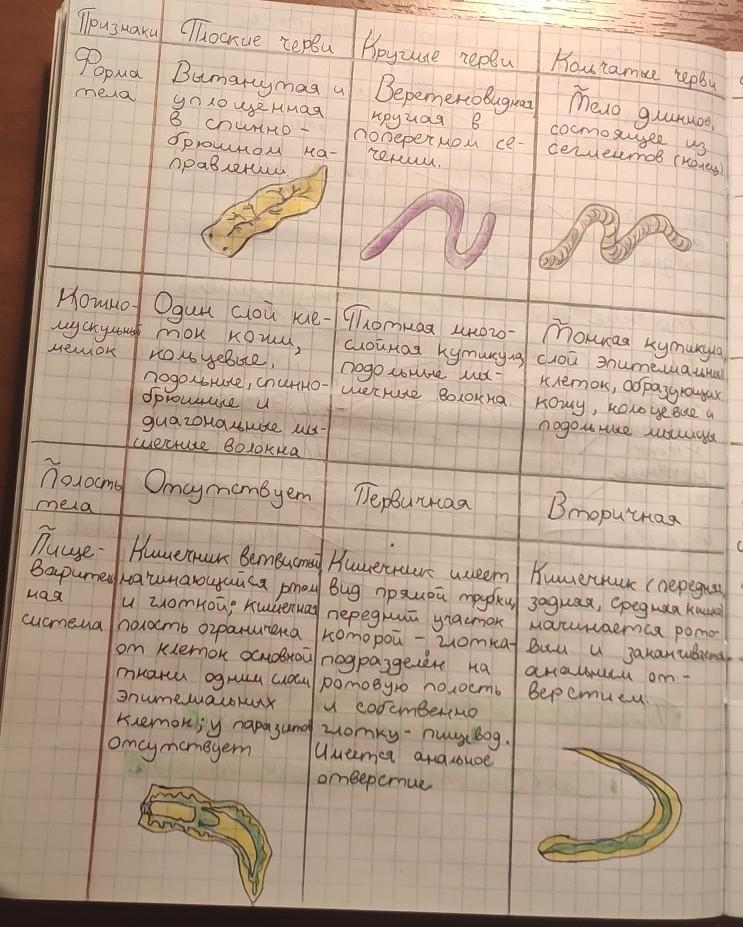 Признаки
Плоские черви
Круглые черви
Кольчатые черви
Форма
тела
Вытянутая и
уплощённая
в спинно-
брюшном на-
правлении.
Веретеновидная,
круглая в
поперечном се-
чении.
Тело длинное,
состоящее из
сегментов (колец)
Кожно-
мускульный
мешок
Один слой кле-
ток кожи,
кольцевые,
подольные, спинно-
брюшные и
диагональные мы-
шечные волокна
Плотная много-
слойная кутикула,
подольные мы-
шечные волокна.
Тонкая кутикула,
слой эпителиальных
клеток, образующих
кожу, кольцевые и
подольные мышцы
Полость
тела
Отсутствует
Первичная
Вторичная
Пище-
варитель
ная
система
Кишечник ветвистый
начинающийся ртом
и глоткой; кишечная
полость ограничена
от клеток основной
ткани одним слоем
эпителиальных
клеток; у паразитов
отсутствует
Кишечник имеет
вид прямой трубки,
передний участок
которой - глотка-
подразделён на
ротовую полость
и собственно
глотку- пищевод.
Имеется анальное
отверстие.
Кишечник (передняя,
задняя, средняя кишка)
начинается рото-
вым и заканчивается
анальным от-
верстием.